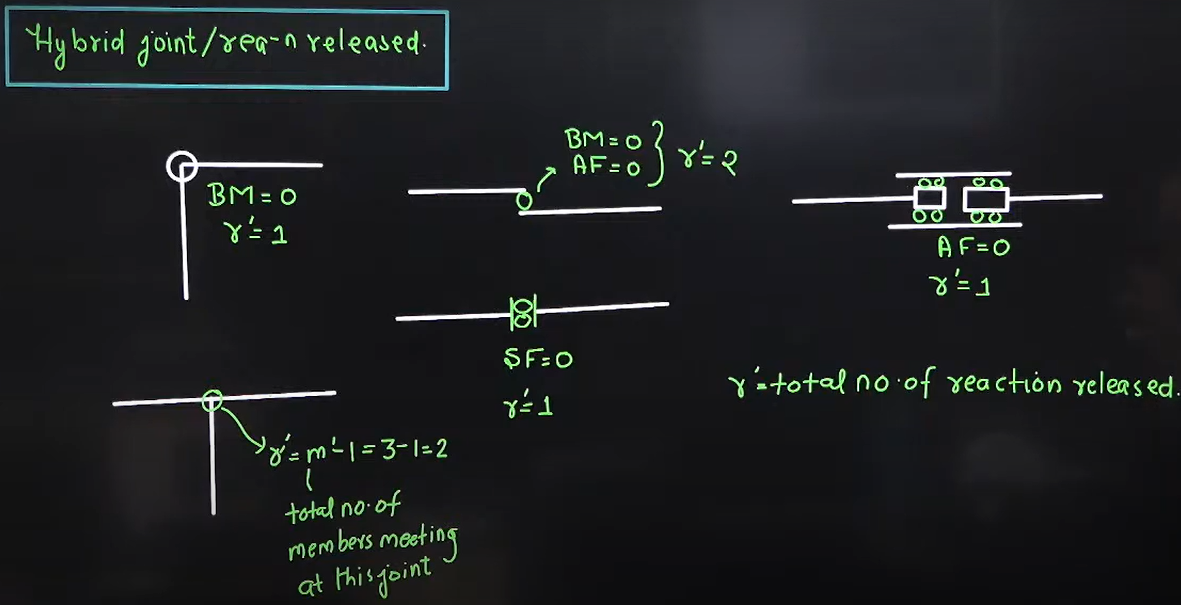 Hybrid joint/rea-n released.
BM=0
r'=1
BM=0
AF=0
r'=2
AF=0
r'=1
SF=0
r'=1
r'=total no. of reaction released.
r'=m'-1=3-1=2
total no. of
members meeting
at this joint